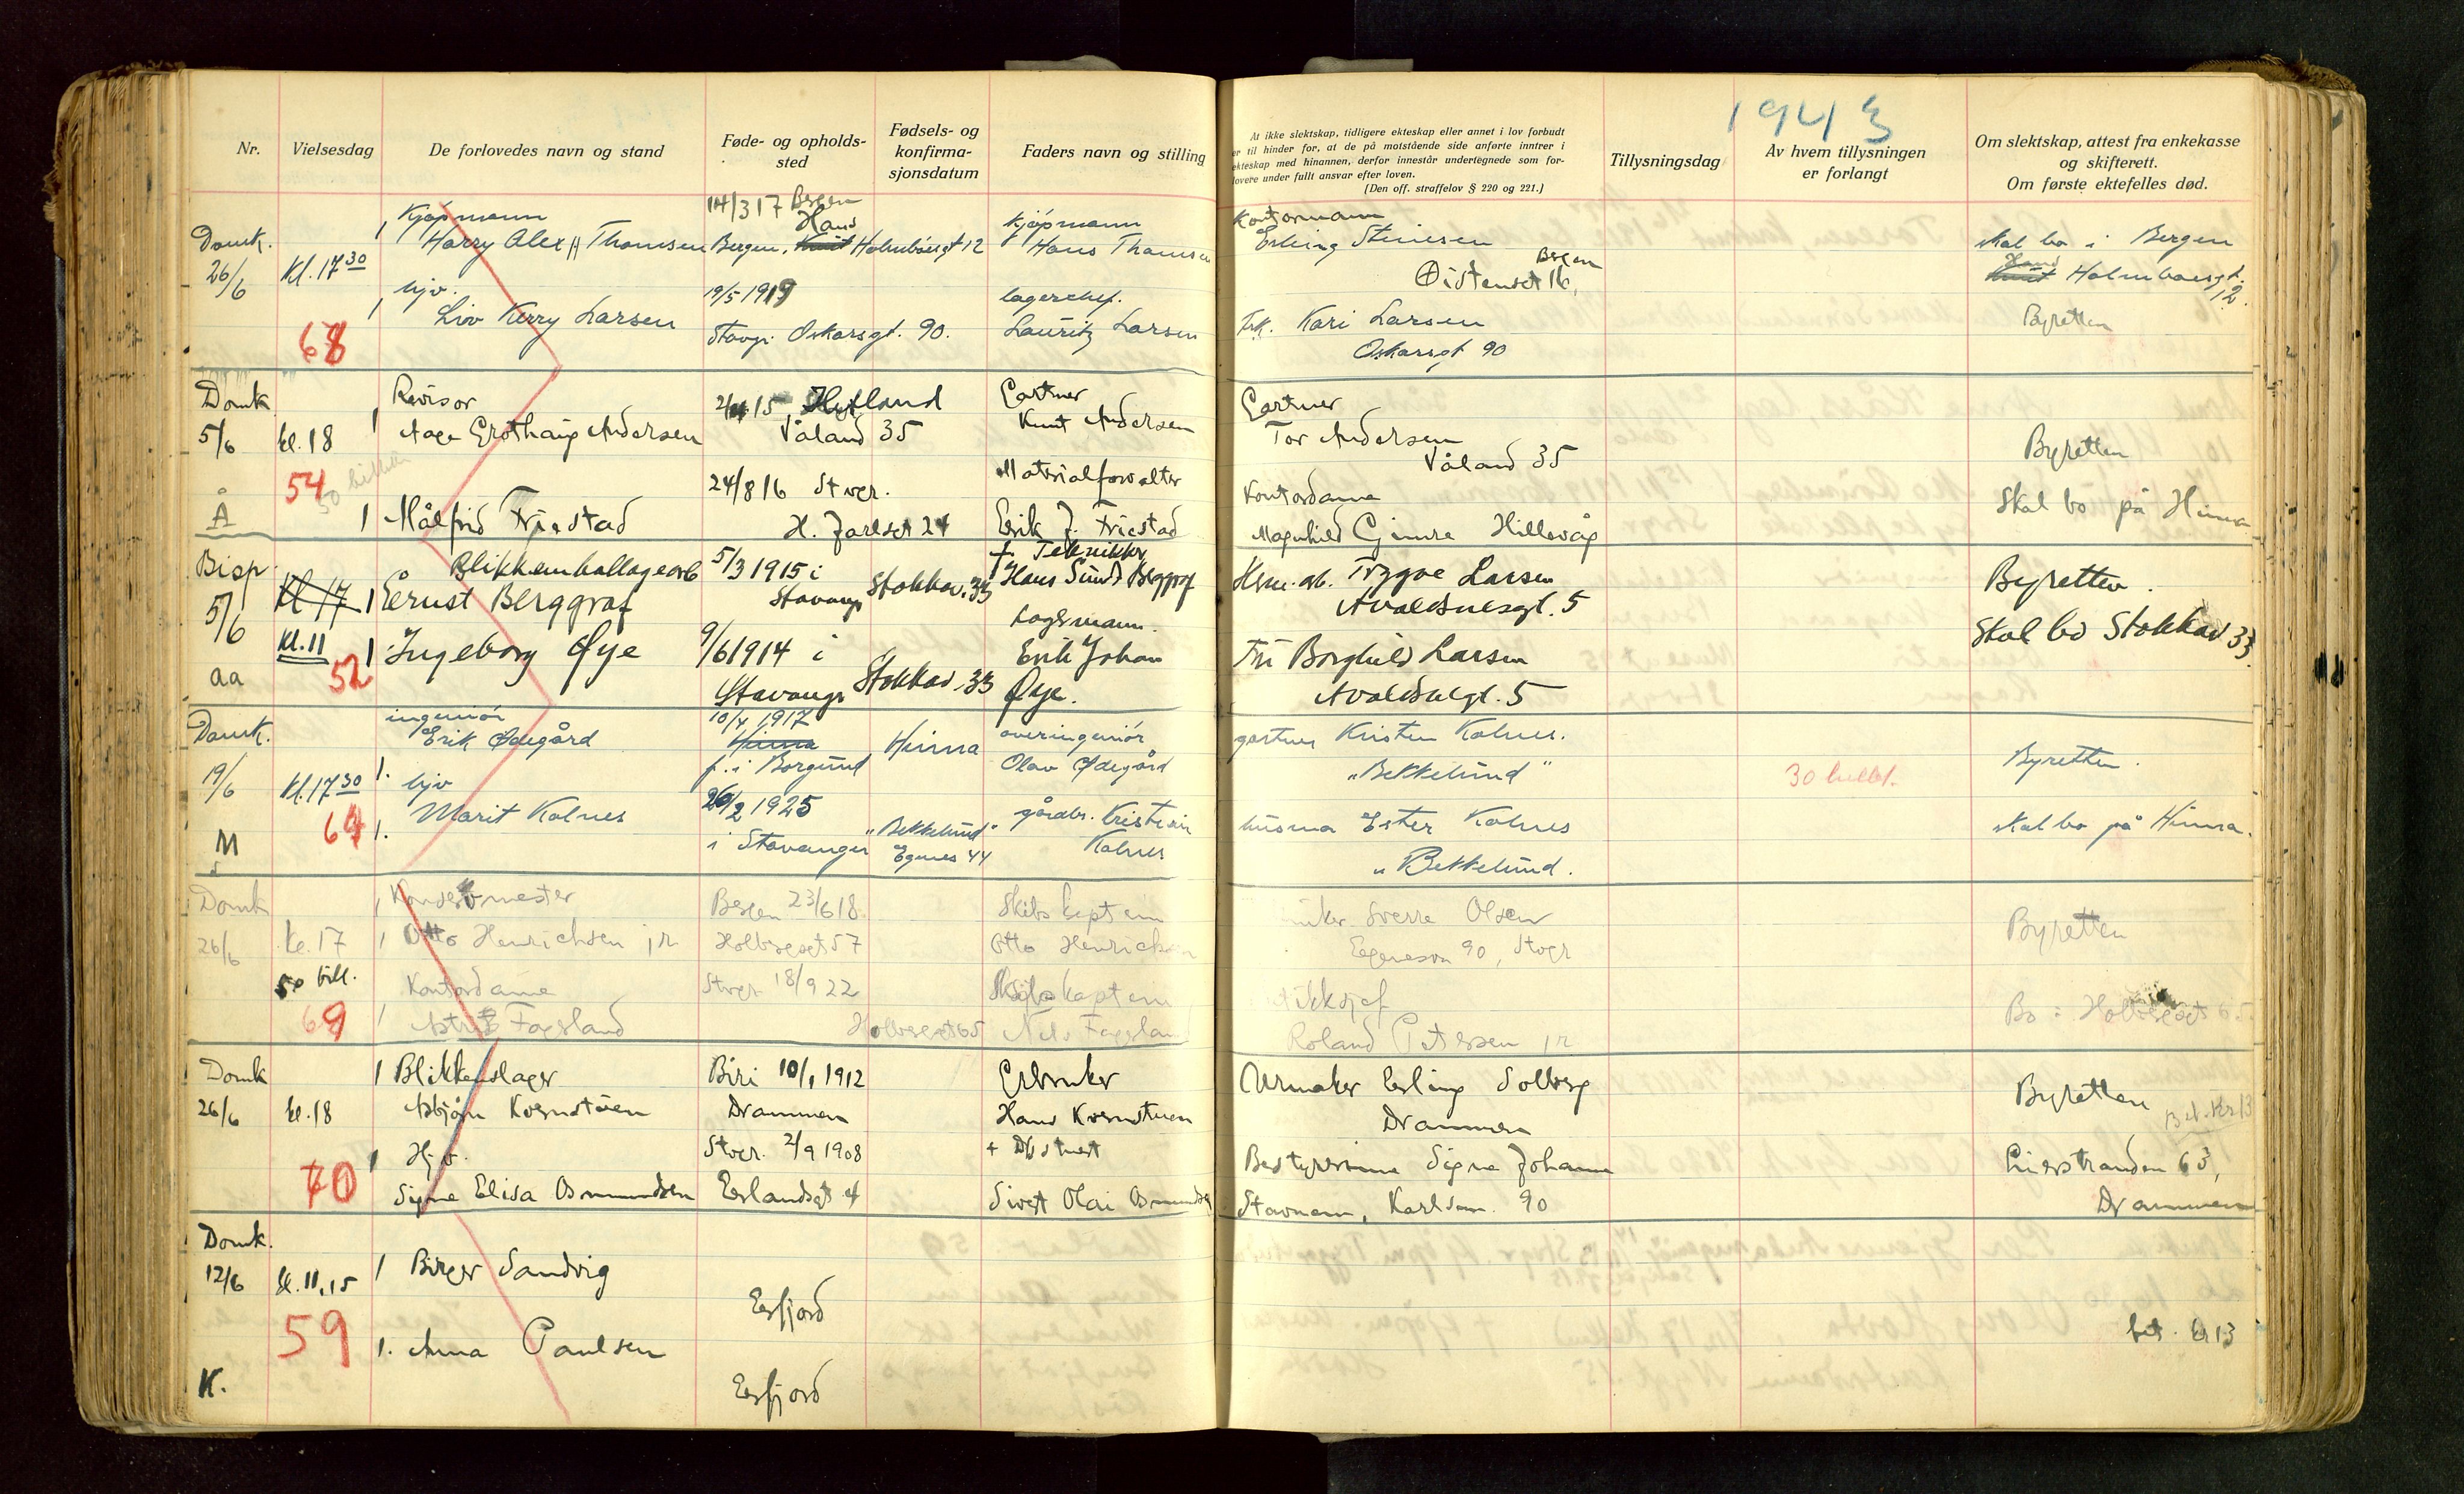 1943
Nr.
Vielsesdag
De forlovedes navn og stand
Føde- og opholds-
sted
Fødsels- og
konfirma-
sjonsdatum
Faders navn og stilling
At ikke slektskap, tidligere ekteskap eller annet i lov forbudt
er til hinder for, at de på motstående side anførte inntrer i
ekteskap med hinannen, derfor innestår undertegnede som for-
lovere under fullt ansvar efter loven.
(Den off. straffelov § 220 og 221.)
Tillysningsdag
Av hvem tillysningen
er forlangt
Om slektskap, attest fra enkekasse
og skifterett.
Om første ektefelles død.
Domk.
26/6
Kl. 17 30
68
1 Kjøpmann
Harry Alex H Thomsen
1 hjv.
Liv Kerry Larsen
14/3 17 Bergen
Hans
Bergen, Knut Holmboesgt 12
19/5 1919
Stavgr. Oskarsgt. 90.
kjøpmann
Hans Thomsen
lagerchef.
Lauritz Larsen
Kontormann
Erling
Bergen
16,
Frk. Kari Larsen
Oskarsgt 90
skal bo i Bergen
Hans
Knut Holmboesgt.
12.
Byretten
Domk
5/6
kl. 18
54
Å
1 Revisor
Aage Andersen
1 Målfrid Friestad
15, Hetland
Våland 35
24/8 16 Stvgr.
H. Jarlsgt 24
Gartner
Knut Andersen
Matrialforvalter
Erik J. Friestad
Gartner
Tor Andersen
Våland 35
Kontordame
Magnhild Gimre Hillevåg
Byretten
Skal bo på Hinna
Bisp
5/6
aa
Kl 17
Kl. 11
52
Blikkemballagearb
1 Ernst Berggraf
1 Ingeborg Øye
5/3 1915 i
Stavang
Stokkav. 33
9/6 1914 i
Stavanger
Stokkav. 33
f. Tekniker
Hans Berggraf
Lagermann.
Erik Johan
Øye.
Trygve Larsen
Avaldsnesgt. 5
Fru Borghild Larsen
Avaldsnesgt. 5
Byretten.
Skal bo Stokkav 33.
Domk.
19/6
M
Kl. 17 30
64
ingeniør
Erik Ødegård
1. hjv
1. Marit Kolnes
10/4 1917
Hinna
f. i Borgund
Hinna
26/2 1925
i Stavanger
"Bekkelund"
Egenes 44
overingeniør
Olav Ødegård
gårdbr. Kristian
Kolnes
gartner Kristen Kolnes.
"Bekkelund"
Ester Kolnes
"Bekkelund.
30 billet.
Byretten.
skal bo på Hinna.
Domk
26/6
kl. 17
50 bill.
69
1
1 Otto Henrichsen jr
Kontordame
1 Astrid Fagsland
Bergen 23/6 18
Holbergsgt 57
Stvgr 18/9 22
Holbergsgt 65
Skibskaptein
Otto Henrichsen
Skibskaptein
Nils Fagsland
Sverre Olsen
Egenesvn 90, Stvgr
Roland Petersen jr
Byretten
Bo i Holbergsgt 65
Domk
26/6
kl. 18
70
1 Blikkenslager
Asbjørn Kvernstuen
1 Hjv.
Signe Elisa Osmundsen
Biri 10/1 1912
Drammen
Stvgr. 2/9 1908
Erlandsgt 4
Gårbruker
Hans Kvernstuen
Sivert Olai Osmundsen
Urmaker Erling Solberg
Drammen
Bestyrerinne Signe Johanne
Stavnem, Karlsmn. 90
Byretten
Bet. Kr 13
Lierstranden 63,
Drammen
Domk.
12/6
K.
kl. 11,15
59
1 Birger Sandvig
1. Anna Paulsen
Erfjord
Erfjord
bet. kr 13